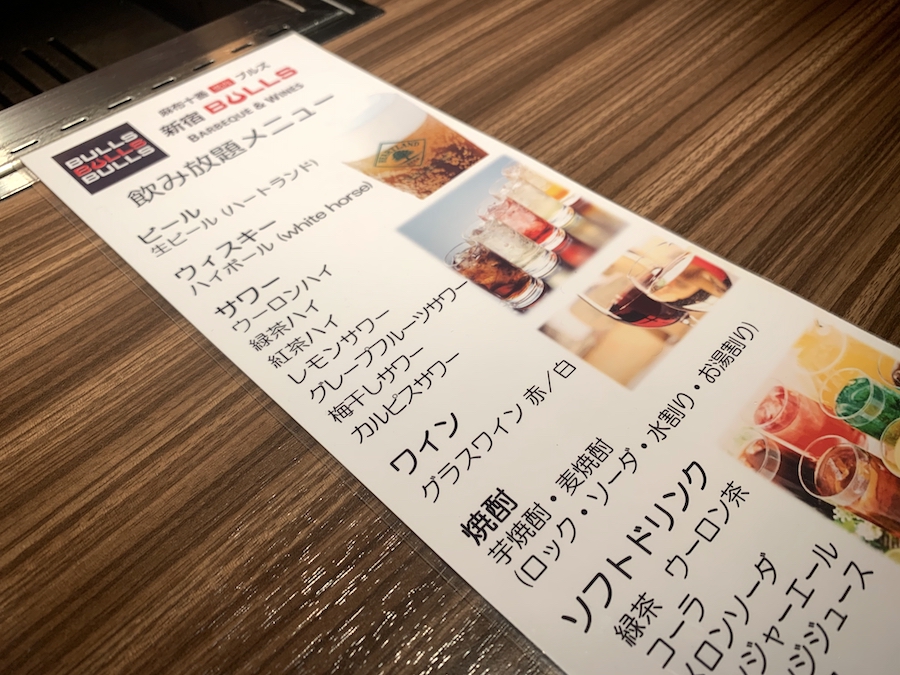 BULLS
BULLS
BULLS
麻布十番 ブルズ
新宿 BULLS
BARBEQUE & WINES
飲み放題メニュー
ビール
生ビール (ハートランド)
ウィスキー
ハイボール (white horse)
サワー
ウーロンハイ
緑茶ハイ
紅茶ハイ
レモンサワー
グレープフルーツサワー
梅干しサワー
カルピスサワー
ワイン
グラスワイン 赤/白
焼酎
芋焼酎・麦焼酎
(ロック・ソーダ・水割り・お湯割り)
ソフトドリンク
緑茶 ウーロン茶
コーラ
メロンソーダ
ンジャーエール
ンジジュース